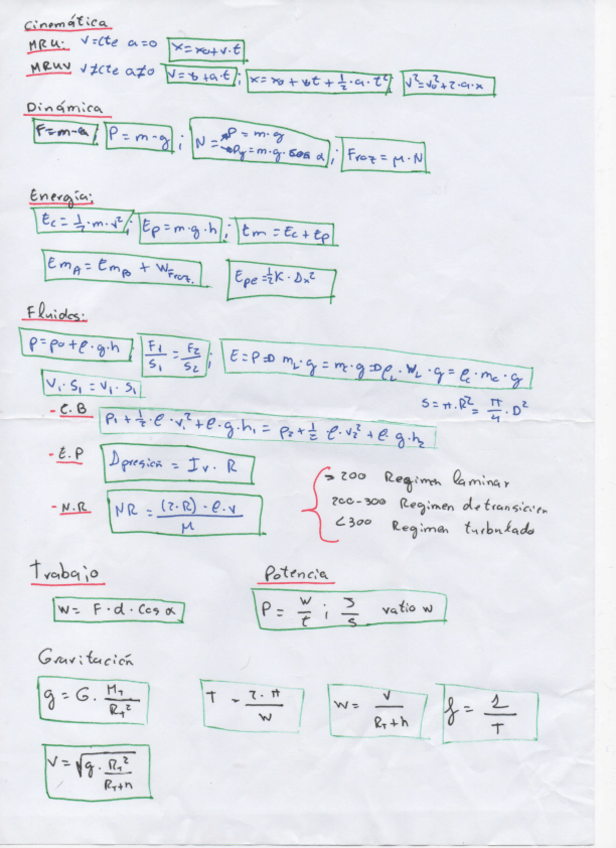 Cinemática
MRU: v=cte a=0 x=x₀+v·t
MRUV v≠cte a≠0 v=v₀+a·t; x=x₀+v₀t+½·a·t²; v²=v₀²+2·a·x
Dinámica
F=m·a; P=m·g; N= P=m·g Py=m·g·cos α; Froz=μ·N
Energía:
Ec=½·m·v²; Ep=m·g·h; Em=Ec+Ep
EmA=EmB+WFroz. Epe=½K·Dx²
Fluidos:
p=p₀+ρ·g·h; F₁/S₁=F₂/S₂; E=P⇒ mL·g=mc·g⇒ρL·WL·g=ρc·mc·g
V₁·S₁=V₁·S₁ S=π·R²=π/4·D²
- E.B P₁+½·ρ·v₁²+ρ·g·h₁=P₂+½ρ·v₂²+ρ·g·h₂
- E.P Dpresión=Iv·R
- N.R NR=(2·R)·ρ·v/μ
>200 Regimen laminar
200-300 Regimen de transición
<300 Regimen turbulado
Trabajo Potencia
W=F·d·cos α P=W/t; J/s vatio w
Gravitación
g=G·M_T/R_T² T=2·π/W W=V/R_T+h f=1/T
V=√g·R_T²/R_T+h